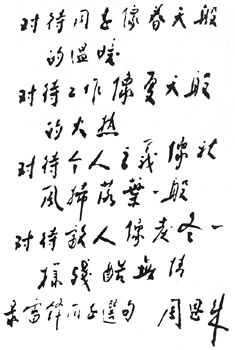 对待同志像春天般
的温暖
对待工作像夏天般
的火热
对待个人主義像秋
風掃落葉一般
对待敌人像严冬一
樣殘酷無情
录雷锋同志選句 周恩来